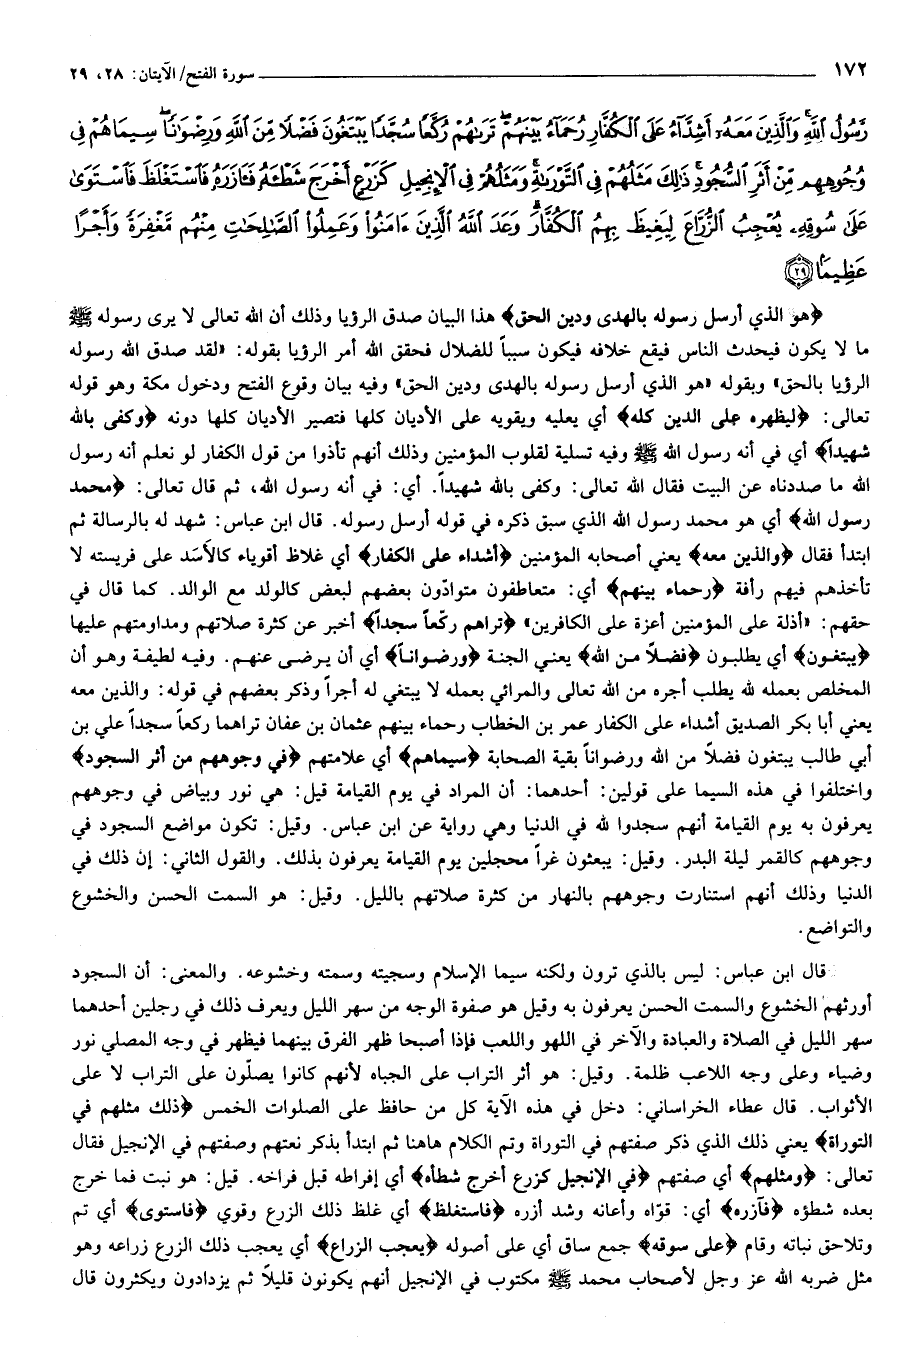 ١٧٢ سورة الفتح/ الآيتان: ٢٨، ٢٩
رَّسُولُ ٱللَّهِ وَٱلَّذِينَ مَعَهُۥٓ أَشِدَّآءُ عَلَى ٱلْكُفَّارِ رُحَمَآءُ بَيْنَهُمْ تَرَىٰهُمْ رُكَّعًا سُجَّدًا يَبْتَغُونَ فَضْلًا مِّنَ ٱللَّهِ وَرِضْوَٰنًا سِيمَاهُمْ فِى
وُجُوهِهِم مِّنْ أَثَرِ ٱلسُّجُودِ ذَٰلِكَ مَثَلُهُمْ فِى ٱلتَّوْرَىٰةِ وَمَثَلُهُمْ فِى ٱلْإِنجِيلِ كَزَرْعٍ أَخْرَجَ شَطْـَٔهُۥ فَـَٔازَرَهُۥ فَٱسْتَغْلَظَ فَٱسْتَوَىٰ
عَلَىٰ سُوقِهِۦ يُعْجِبُ ٱلزُّرَّاعَ لِيَغِيظَ بِهِمُ ٱلْكُفَّارَ وَعَدَ ٱللَّهُ ٱلَّذِينَ ءَامَنُوا۟ وَعَمِلُوا۟ ٱلصَّٰلِحَٰتِ مِنْهُم مَّغْفِرَةً وَأَجْرًا
عَظِيمًا ﴿٢٩﴾
﴿هو الذي أرسل رسوله بالهدى ودين الحق﴾ هذا البيان صدق الرؤيا وذلك أن الله تعالى لا يرى رسوله ﷺ
ما لا يكون فيحدث الناس فيقع خلافه فيكون سبباً للضلال فحقق الله أمر الرؤيا بقوله: «لقد صدق الله رسوله
الرؤيا بالحق» وبقوله «هو الذي أرسل رسوله بالهدى ودين الحق» وفيه بيان وقوع الفتح ودخول مكة وهو قوله
تعالى: ﴿ليظهره على الدين كله﴾ أي يعليه ويقويه على الأديان كلها فتصير الأديان كلها دونه ﴿وكفى بالله
شهيداً﴾ أي في أنه رسول الله ﷺ وفيه تسلية لقلوب المؤمنين وذلك أنهم تأذوا من قول الكفار لو نعلم أنه رسول
الله ما صددناه عن البيت فقال الله تعالى: وكفى بالله شهيداً. أي: في أنه رسول الله، ثم قال تعالى: ﴿محمد
رسول الله﴾ أي هو محمد رسول الله الذي سبق ذكره في قوله أرسل رسوله. قال ابن عباس: شهد له بالرسالة ثم
ابتدأ فقال ﴿والذين معه﴾ يعني أصحابه المؤمنين ﴿أشداء على الكفار﴾ أي غلاظ أقوياء كالأسَد على فريسته لا
تأخذهم فيهم رأفة ﴿رحماء بينهم﴾ أي: متعاطفون متوادّون بعضهم لبعض كالولد مع الوالد. كما قال في
حقهم: «أذلة على المؤمنين أعزة على الكافرين» ﴿تراهم ركّعاً سجداً﴾ أخبر عن كثرة صلاتهم ومداومتهم عليها
﴿يبتغون﴾ أي يطلبون ﴿فضلاً من الله﴾ يعني الجنة ﴿ورضواناً﴾ أي أن يرضى عنهم. وفيه لطيفة وهو أن
المخلص بعمله لله يطلب أجره من الله تعالى والمرائي بعمله لا يبتغي له أجراً وذكر بعضهم في قوله: والذين معه
يعني أبا بكر الصديق أشداء على الكفار عمر بن الخطاب رحماء بينهم عثمان بن عفان تراهما ركعاً سجداً علي بن
أبي طالب يبتغون فضلاً من الله ورضواناً بقية الصحابة ﴿سيماهم﴾ أي علامتهم ﴿في وجوههم من أثر السجود﴾
واختلفوا في هذه السيما على قولين: أحدهما: أن المراد في يوم القيامة قيل: هي نور وبياض في وجوههم
يعرفون به يوم القيامة أنهم سجدوا لله في الدنيا وهي رواية عن ابن عباس. وقيل: تكون مواضع السجود في
وجوههم كالقمر ليلة البدر. وقيل: يبعثون غراً محجلين يوم القيامة يعرفون بذلك. والقول الثاني: إن ذلك في
الدنيا وذلك أنهم استنارت وجوههم بالنهار من كثرة صلاتهم بالليل. وقيل: هو السمت الحسن والخشوع
والتواضع.
قال ابن عباس: ليس بالذي ترون ولكنه سيما الإسلام وسجيته وسمته وخشوعه. والمعنى: أن السجود
أورثهم الخشوع والسمت الحسن يعرفون به وقيل هو صفوة الوجه من سهر الليل ويعرف ذلك في رجلين أحدهما
سهر الليل في الصلاة والعبادة والآخر في اللهو واللعب فإذا أصبحا ظهر الفرق بينهما فيظهر في وجه المصلي نور
وضياء وعلى وجه اللاعب ظلمة. وقيل: هو أثر التراب على الجباه لأنهم كانوا يصلّون على التراب لا على
الأثواب. قال عطاء الخراساني: دخل في هذه الآية كل من حافظ على الصلوات الخمس ﴿ذلك مثلهم في
التوراة﴾ يعني ذلك الذي ذكر صفتهم في التوراة وتم الكلام هاهنا ثم ابتدأ بذكر نعتهم وصفتهم في الإنجيل فقال
تعالى: ﴿ومثلهم﴾ أي صفتهم ﴿في الإنجيل كزرع أخرج شطأه﴾ أي إفراطه قبل فراخه. قيل: هو نبت فما خرج
بعده شطؤه ﴿فآزره﴾ أي: قوّاه وأعانه وشد أزره ﴿فاستغلظ﴾ أي غلظ ذلك الزرع وقوي ﴿فاستوى﴾ أي تم
وتلاحق نباته وقام ﴿على سوقه﴾ جمع ساق أي على أصوله ﴿يعجب الزراع﴾ أي يعجب ذلك الزرع زراعه وهو
مثل ضربه الله عز وجل لأصحاب محمد ﷺ مكتوب في الإنجيل أنهم يكونون قليلاً ثم يزدادون ويكثرون قال